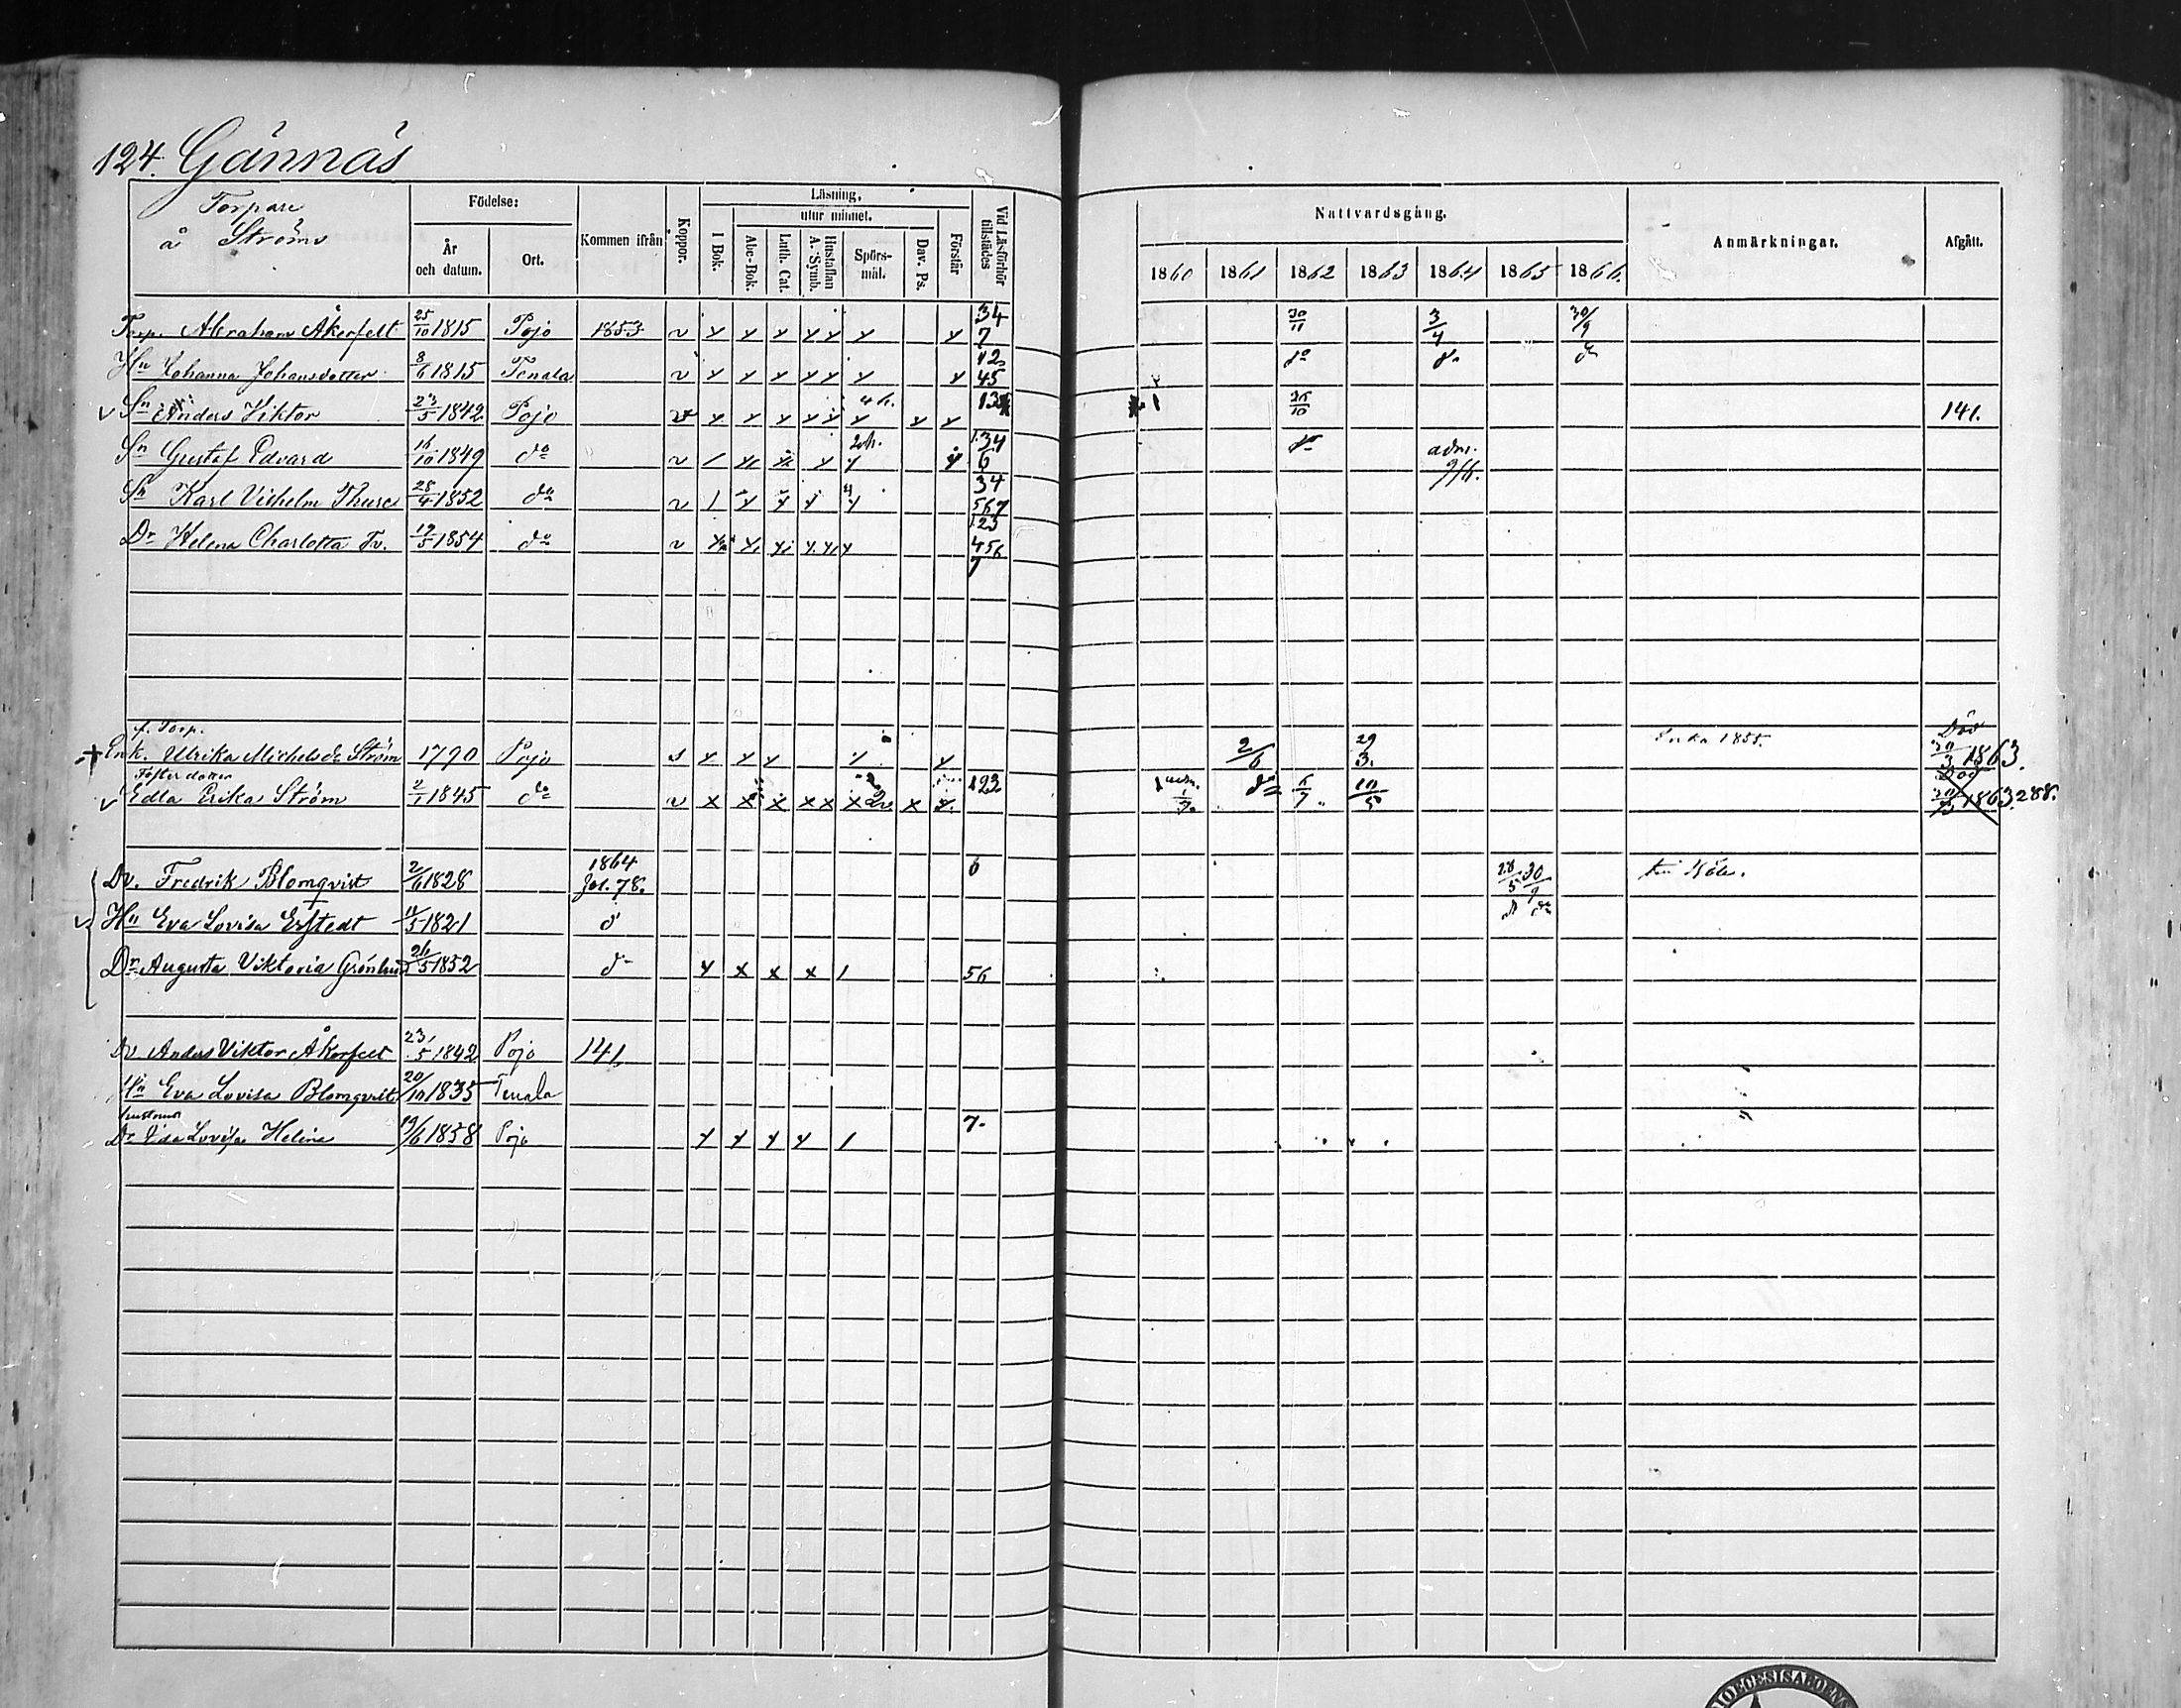 124. Gännäs
Torpare
å Ströms
Födelse:
År och datum.
Ort.
Kommen ifrån
Koppor.
Läsning,
I Bok.
utur minnet.
Abc-Bok.
Luth. Cat.
Hustaflan A.-Symb.
Spörs-mål.
Dav. Ps.
Förstår
Vid Läsförhör tillstädes
Nattvardsgång.
1860 1861 1862 1863 1864 1865 1866.
Anmärkningar.
Afgått.
Torp. Abraham Åkerfelt 25/10 1815 Pojo 1853 v 34 7 30/11 3/4 30/9
Hu Johanna Johansdotter 8/6 1815 Tenala v 12 45 do do do
v Sn Anders Viktor 23/5 1842 Pojo v 13 1 26/10 141.
Sn Gustaf Edvard 16/10 1849 do v 34 6 do adm.
Sn Karl Vilhelm Thure 28/4 1852 do v 34 567
Dr Helena Charlotta Tv. 19/5 1854 do v 123 456 7
f. Torp.
+ Enk. Ulrika Michelsdr Ström 1790 Pojo s 2/6 29 3. Enka 1855. Död 30/3 1863.
Foster dotter
v Edla Erika Ström 2/1 1845 do v 123 do 6/7 10/5 Död 30/3 1863. 288.
Dr. Fredrik Blomqvist 2/6 1828 1864 fol. 78. 6 28/5 30/9
v Hu Eva Lovisa Erstedt 1821 d
Dr Augusta Viktoria Grönlund 26/5 1852 d 56
Dr. Anders Viktor Åkerfelt 23/5 1842 Pojo 141
Hu Eva Lovisa Blomqvist 20/10 1835 Tenala
hustruns
Dr Eda Lovisa Helena 19/6 1858 Pojo 7